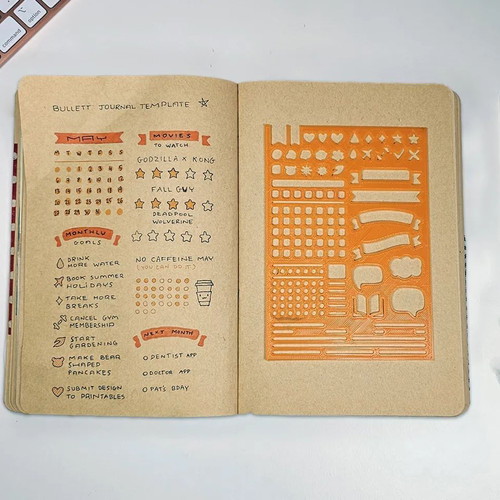 command
option
BULLETT JOURNAL TEMPLATE
MAY
M T W T F S S
MONTHLY
GOALS
DRINK
MORE WATER
BOOK SUMMER
HOLIDAYS
TAKE MORE
BREAKS
CANCEL GYM
MEMBERSHIP
START
GARDENING
MAKE BEAR
SHAPED
PANCAKES
SUBMIT DESIGN
TO PRINTABLES
MOVIES
TO WATCH
GODZILLA X KONG
FALL GUY
DEADPOOL
WOLVERINE
NO CAFFEINE MAY
(YOU CAN DO IT)
NEXT MONTH
DENTIST APP
DOCTOR APP
PAT'S BDAY